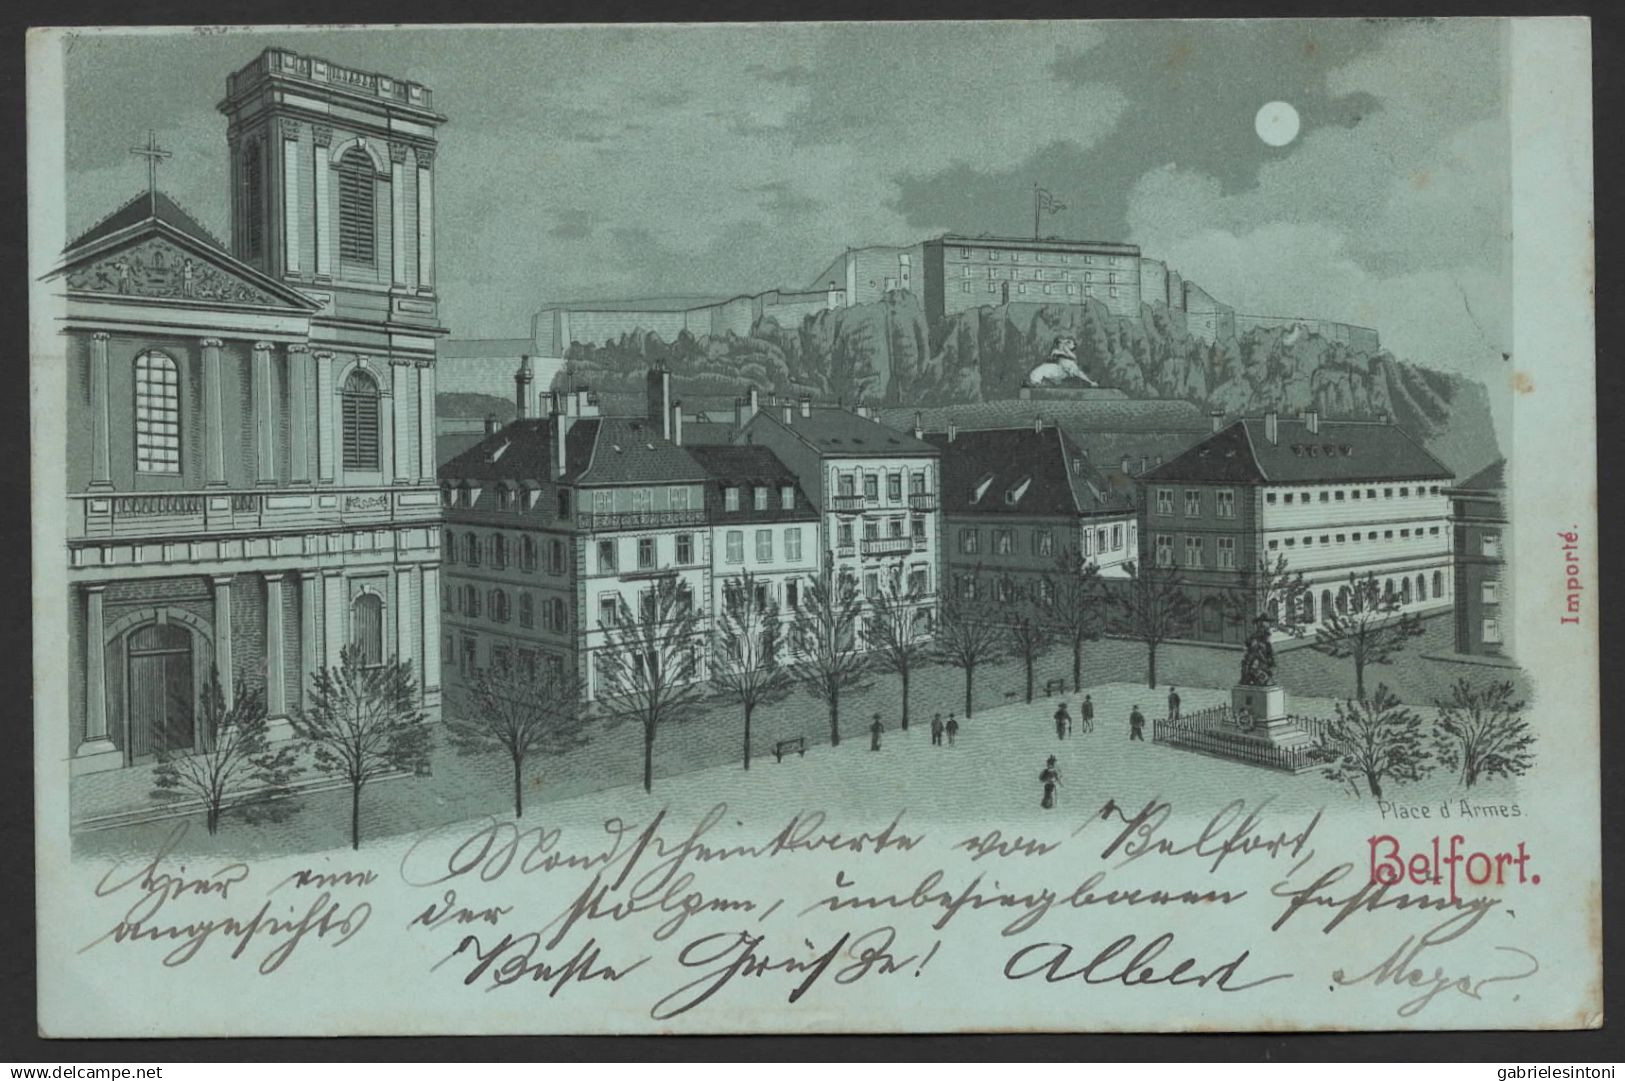 Importé.
Place d'Armes.
Belfort.
Hier eine Mondscheinkarte von Belfort,
angesichts der stolzen, unbesiegbaren Festung.
Beste Grüße! Albert Meyer.
delcampe.net
gabrielesintoni